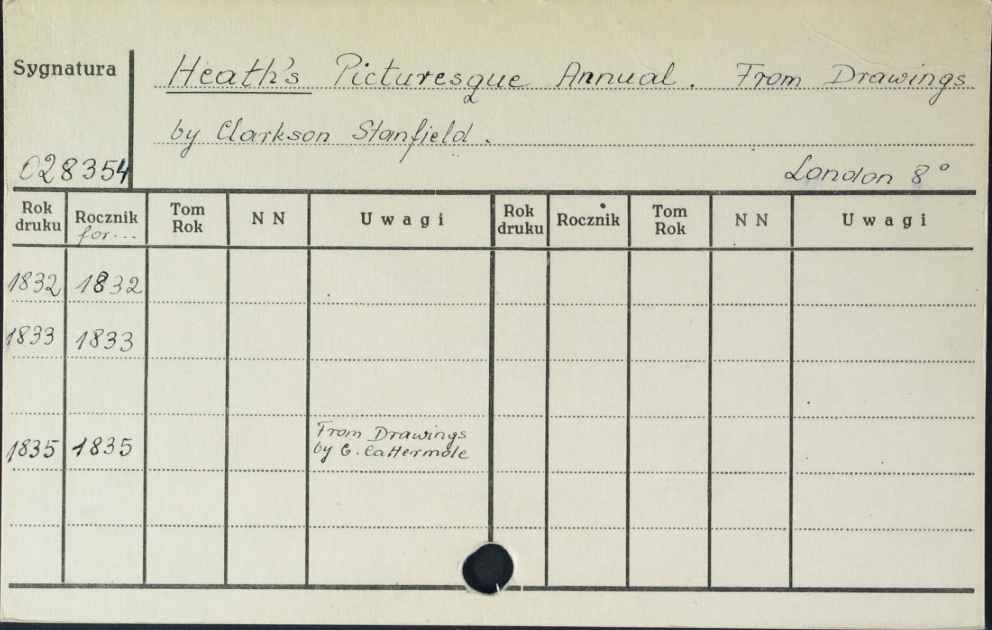 Sygnatura
Heath's Picturesque Annual. From Drawings
by Clarkson Stanfield.
028354
London 8°
Rok druku Rocznik for... Tom Rok N N Uwagi Rok druku Rocznik Tom Rok N N Uwagi
1832 1832
1833 1833
1835 1835 From Drawings
by G. Cattermole